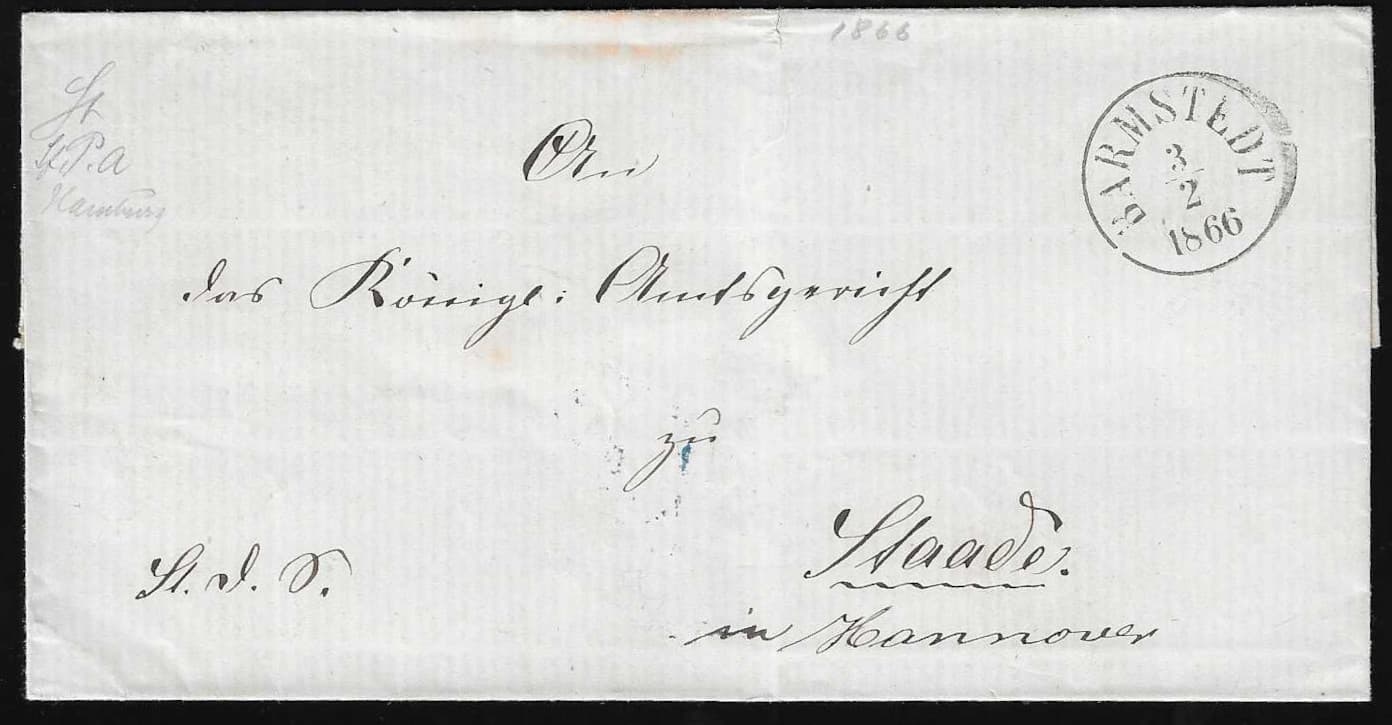 1866
BARMSTEDT
3/2
1866
St
St. P. A
Hamburg
An
das Königl: Amtsgericht
zu
Staade.
in Hannover
St. d. S.